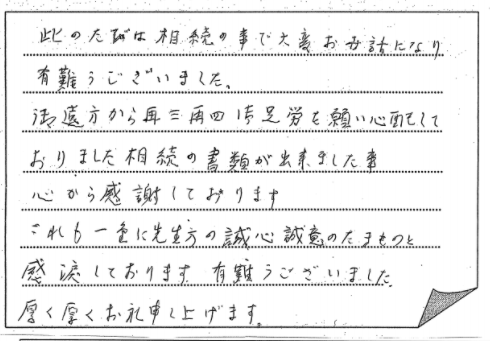 此のたびは相続の事で大変お世話になり
有難うございました。
御遠方から再三再四御足労を願い心配をして
おりました相続の書類が出来ました事
心から感謝しております
これも一重に先生方の誠心誠意のたまものと
感涙しております。有難うございました
厚く厚くお礼申し上げます。